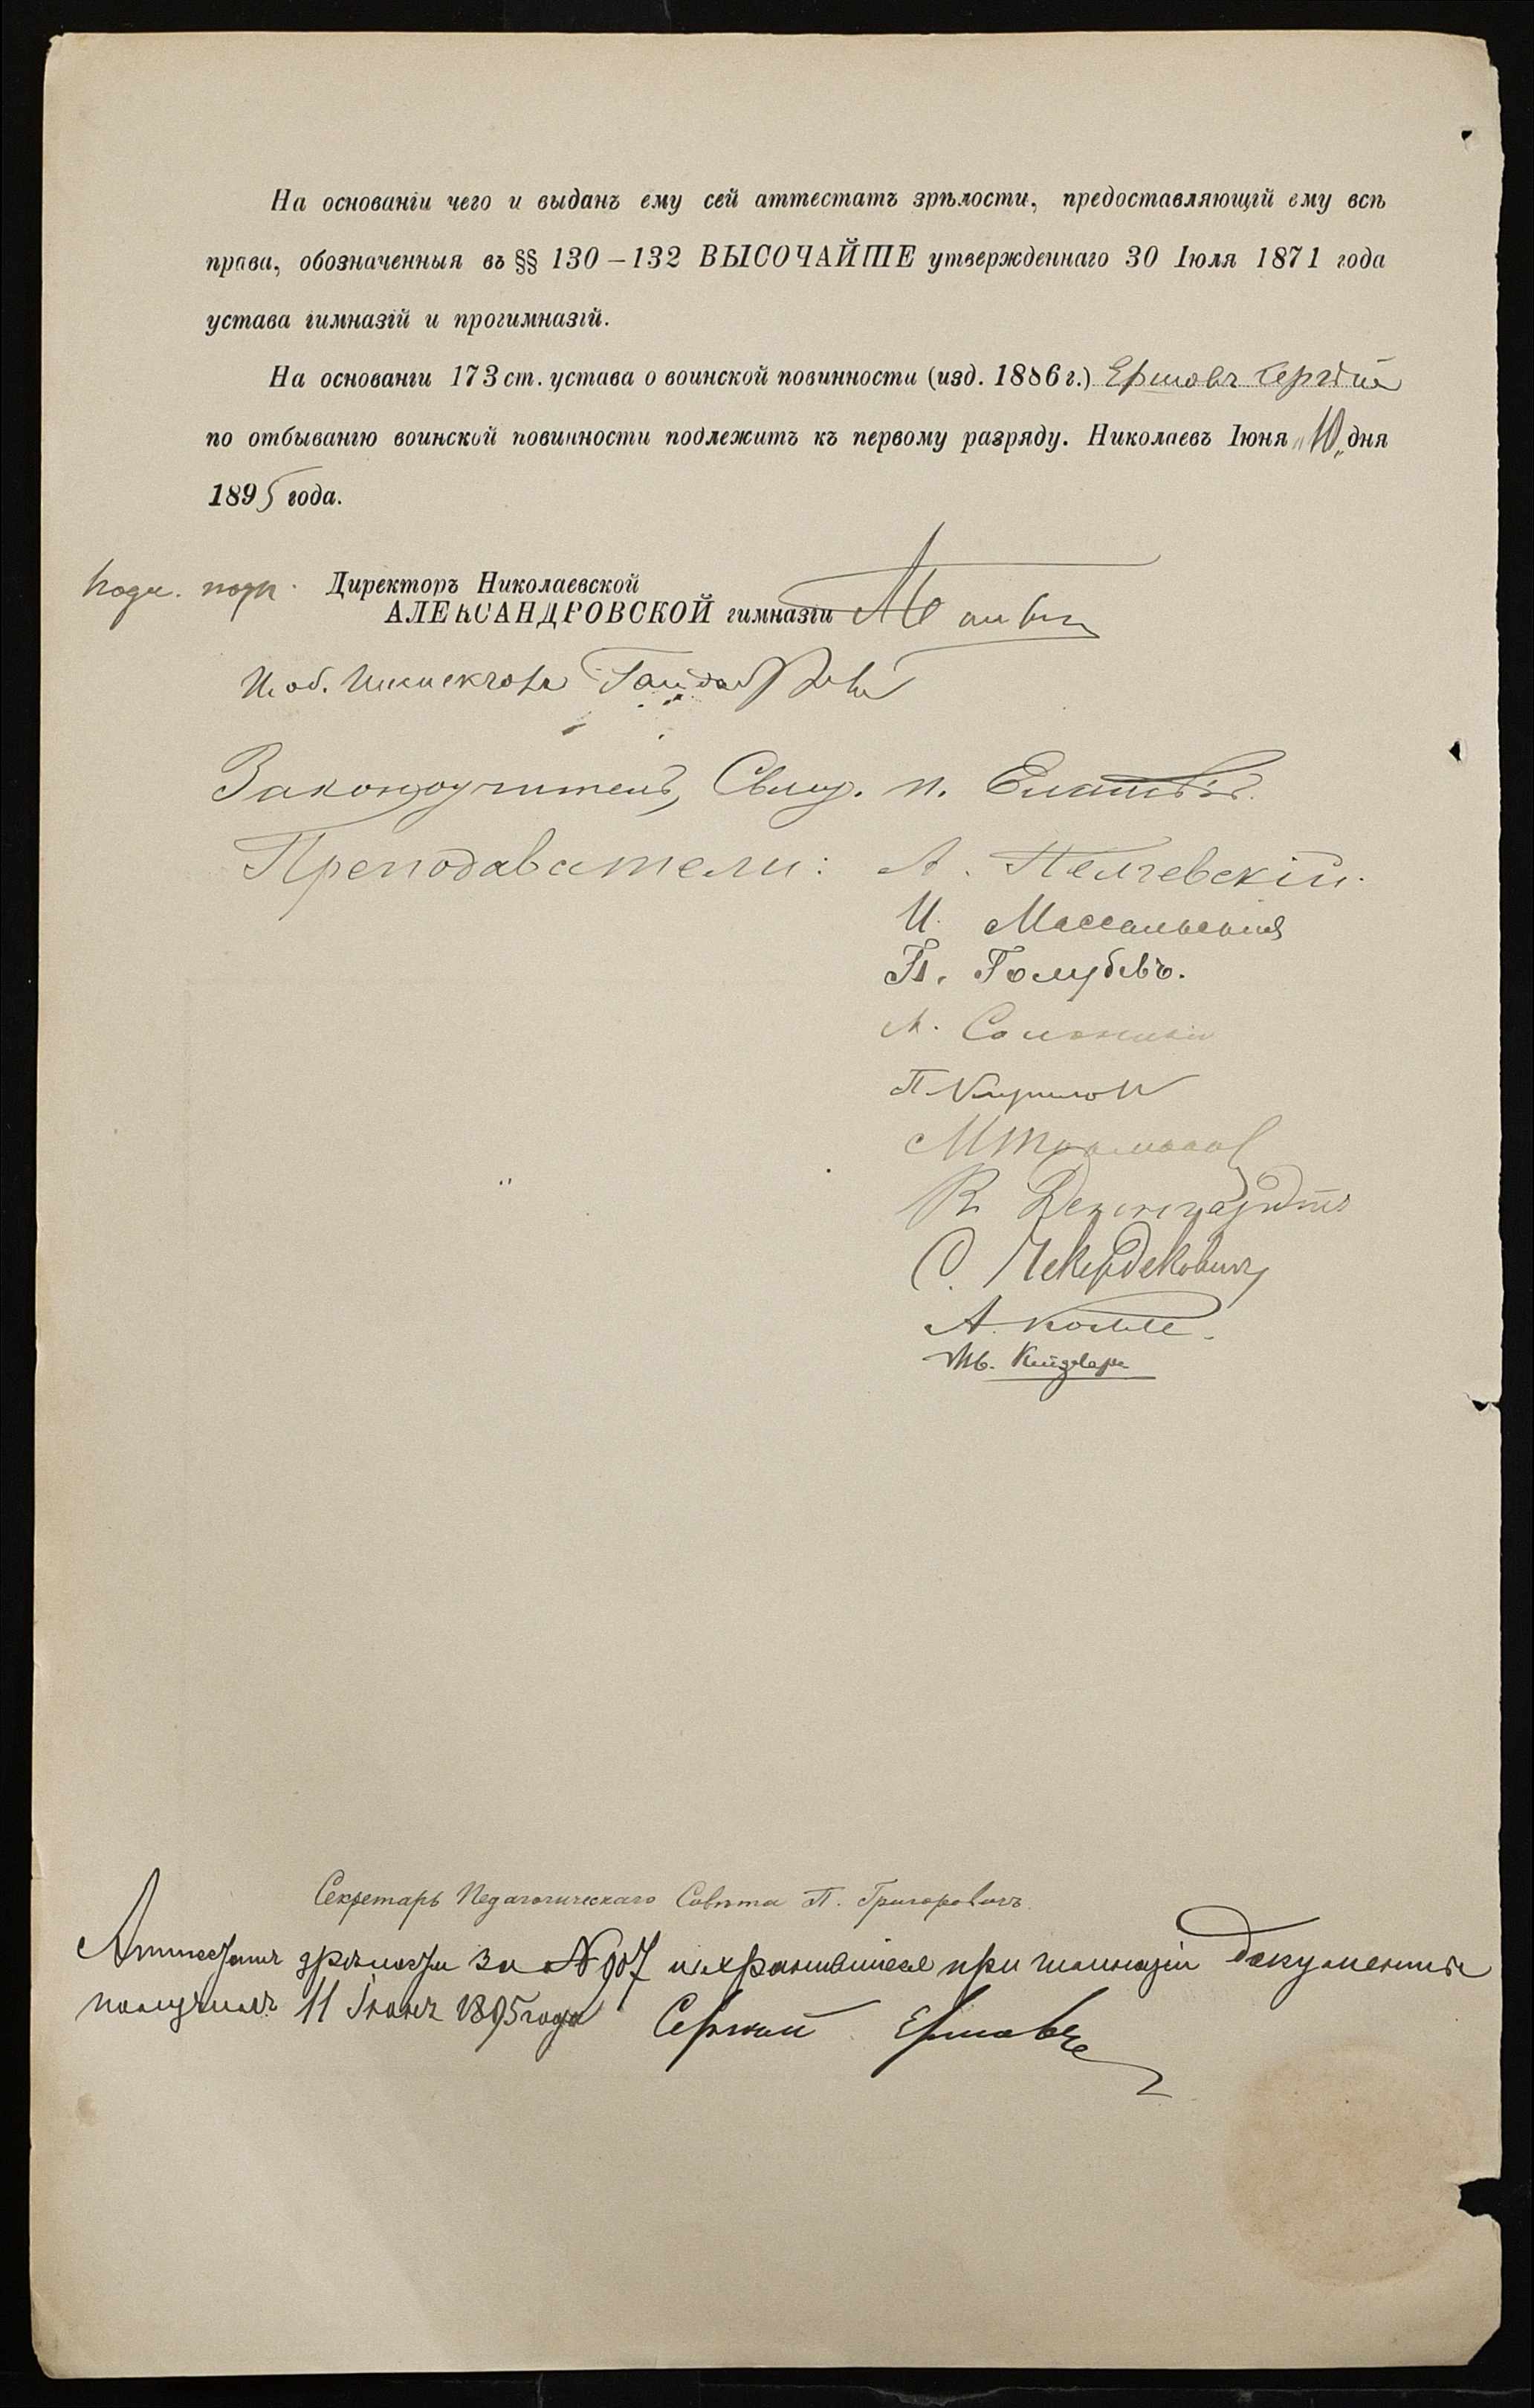 На основаніи чего и выданъ ему сей аттестатъ зрѣлости, предоставляющій ему всѣ
права, обозначенныя въ §§ 130–132 ВЫСОЧАЙШЕ утвержденнаго 30 Іюля 1871 года
устава гимназій и прогимназій.
На основаніи 173 ст. устава о воинской повинности (изд. 1886 г.) Ершовъ Сергѣй
по отбыванію воинской повинности подлежитъ къ первому разряду. Николаевъ Іюня „10„ дня
1895 года.
Директоръ Николаевской
АЛЕКСАНДРОВСКОЙ гимназіи
И. об. Инспектора
Законоучитель, Свящ. п.
Преподаватели: А. Пелчевскій.
И.
П. Голубевъ.
А.
П.
М
К.
С. Чекердековичъ
А.
Секретарь Педагогическаго Совѣта П. Григоровичъ.
Аттестатъ зрѣлости за № 907 и хранившіеся при гимназіи документы
получилъ 11 Іюня 1895 года Сергѣй Ершовъ